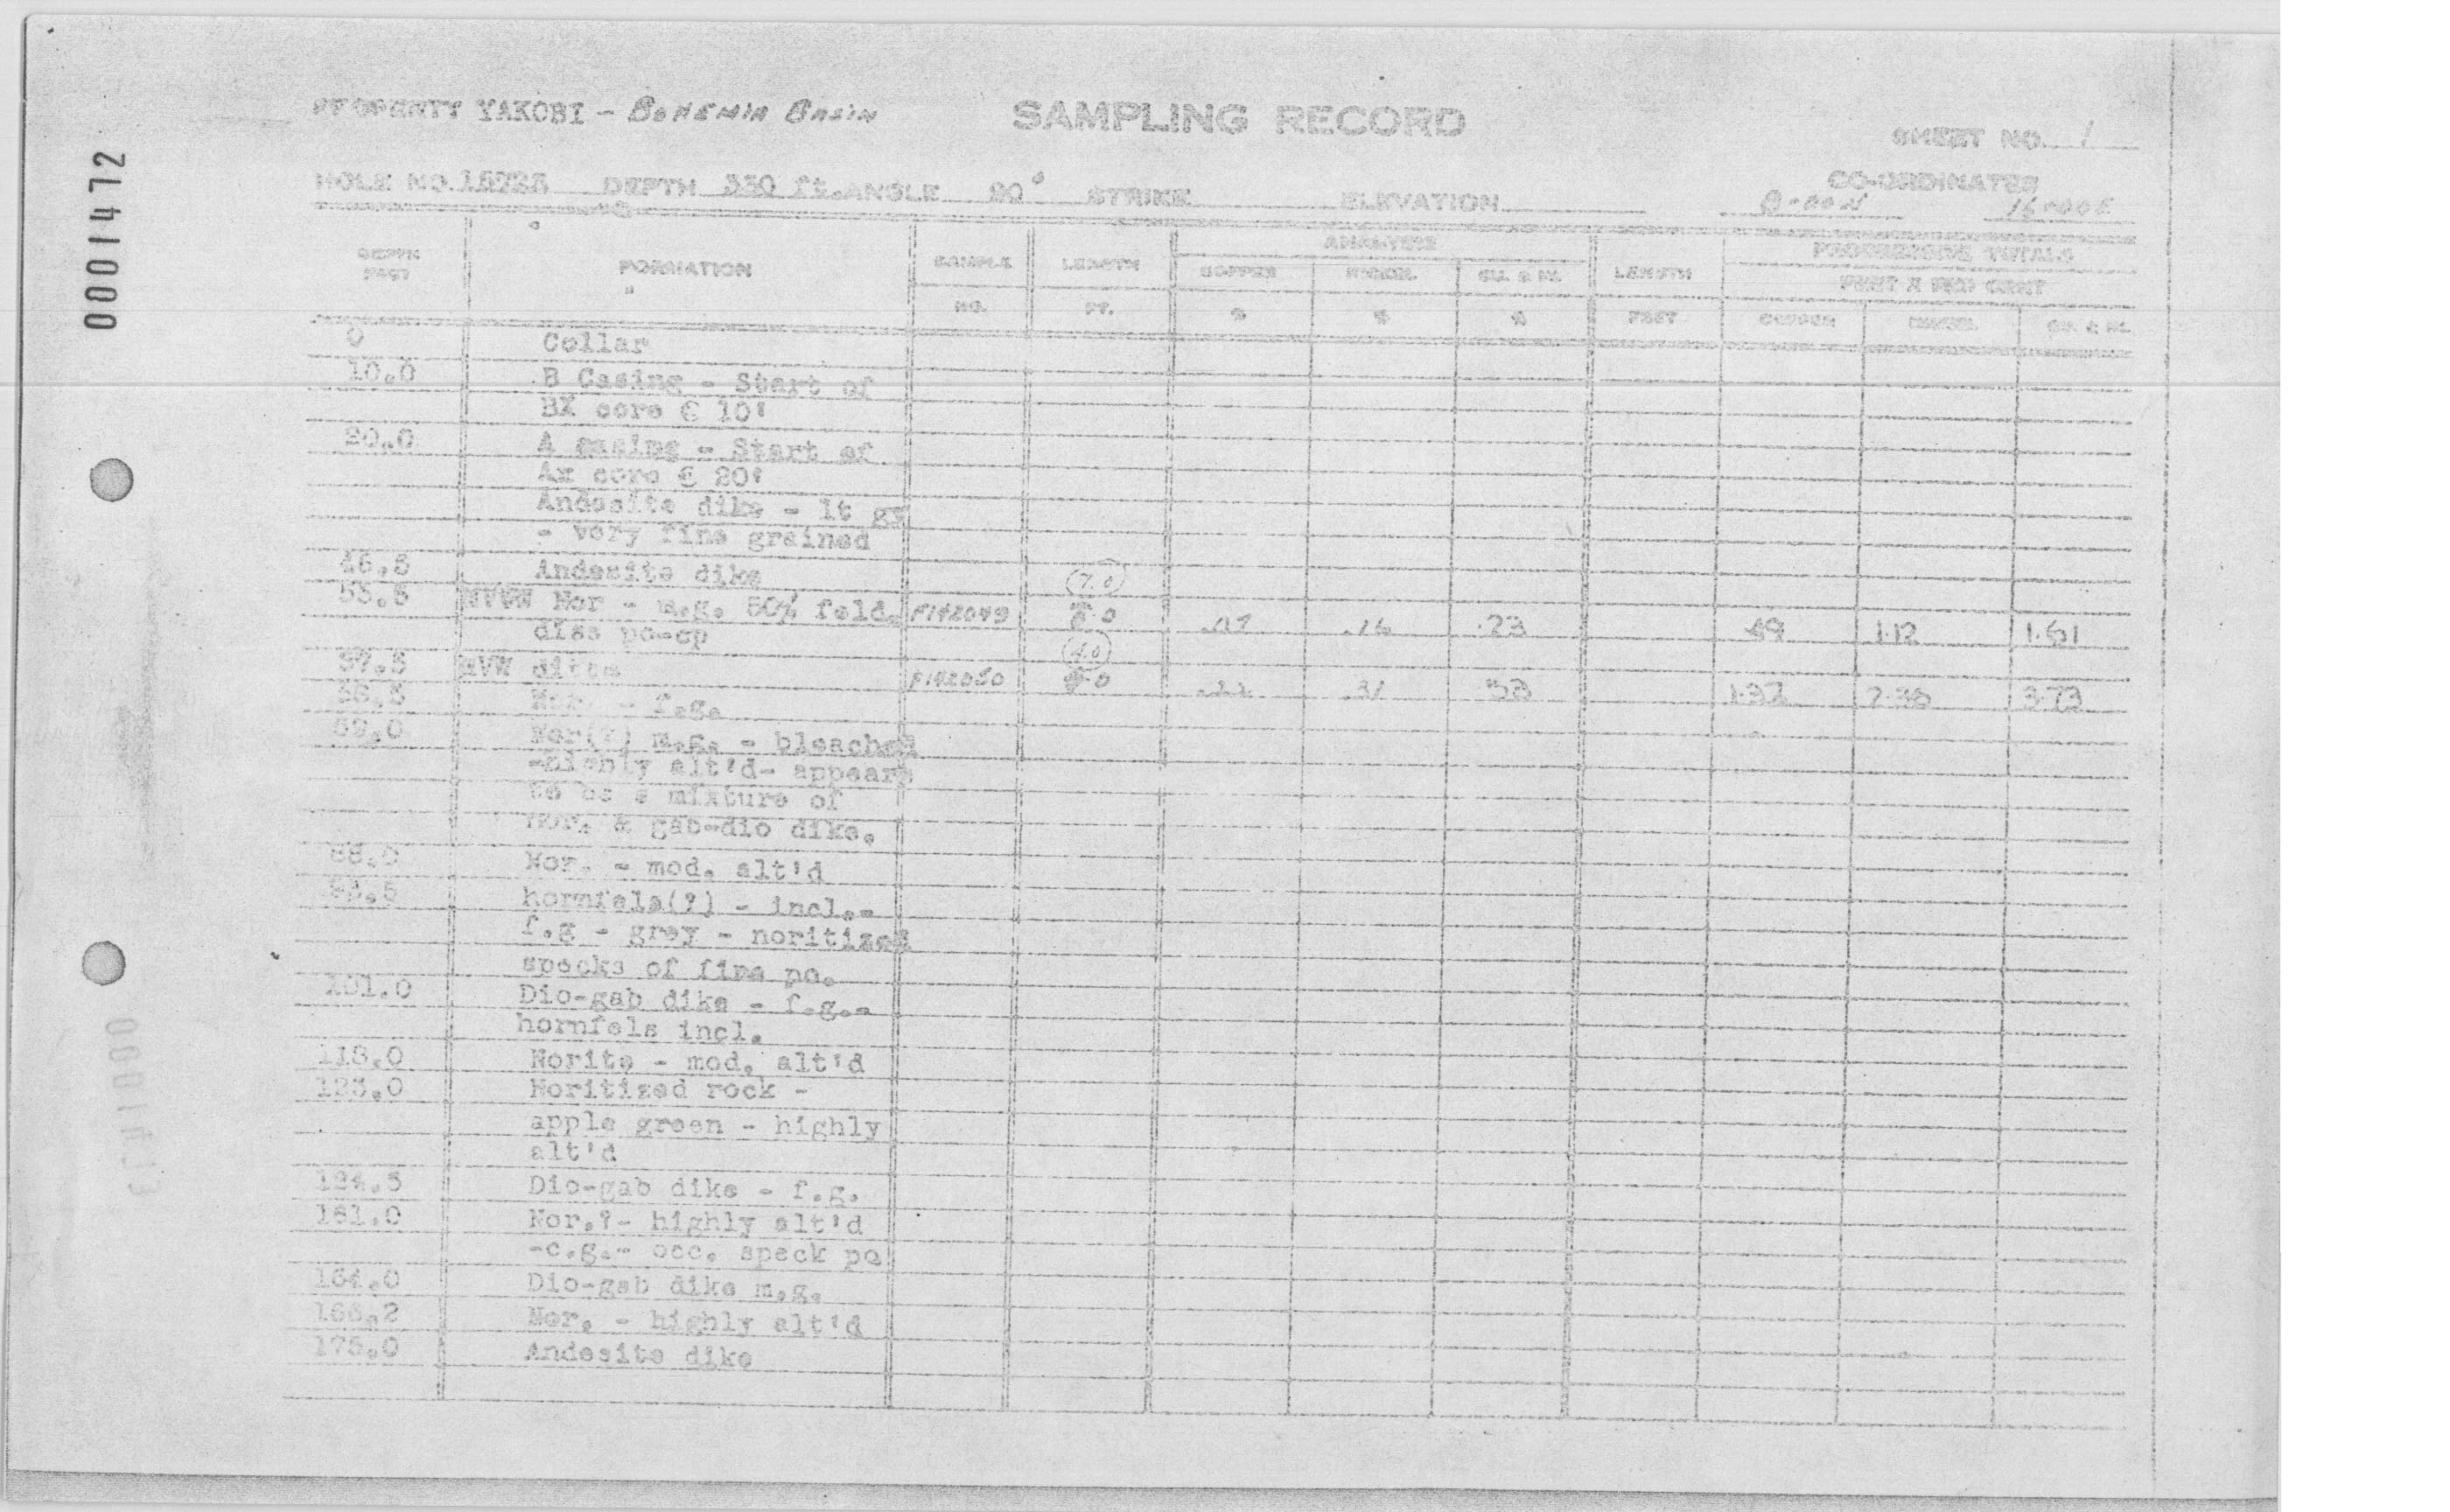 0001472
PROPERTY YAKOBI - BOHEMIA BASIN SAMPLING RECORD
SHEET NO. 1
HOLE NO. DEPTH 330 ft. ANGLE 90° STRIKE ELEVATION CO-ORDINATES
16+00E
DEPTH FEET FORMATION SAMPLE NO. LENGTH FT. ANALYSIS COPPER % NICKEL % CU. & NI. % LENGTH FEET PROGRESSIVE TOTALS FEET X PER CENT COPPER NICKEL CU. & NI.
0 Collar
10.0 B Casing - Start of
BX core @ 10'
20.0 A casing - Start of
Ax core @ 20'
Andesite dike - lt gy
- very fine grained
46.5 Andesite dike
53.5 Nor - m.g. 50% feld. F142049 (7.0) .07 .16 .23 .49 1.12 1.61
diss po-cp
ditto F142050 (4.0) .31 3.73
Nor - f.g.
59.0 Nor(?) m.g. - bleached
-highly alt'd- appears
to be a mixture of
nor. & gab-dio dike.
88.0 Nor. - mod. alt'd
hornfels(?) - incl.-
f.g - grey - noritized
specks of fine po.
101.0 Dio-gab dike - f.g.-
hornfels incl.
118.0 Norite - mod. alt'd
123.0 Noritized rock -
apple green - highly
alt'd
124.5 Dio-gab dike - f.g.
161.0 Nor.?- highly alt'd
-c.g.- occ. speck po
164.0 Dio-gab dike m.g.
166.2 Nor. - highly alt'd
175.0 Andesite dike